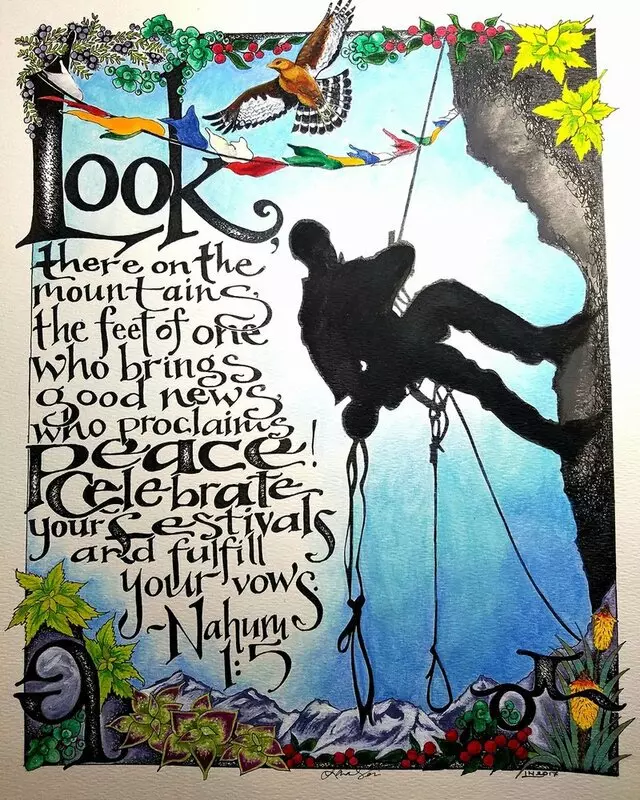 Look,
there on the
mountains,
the feet of one
who brings
good news,
who proclaims
peace!
Celebrate
your festivals
and fulfill
your vows.
~Nahum
1:5